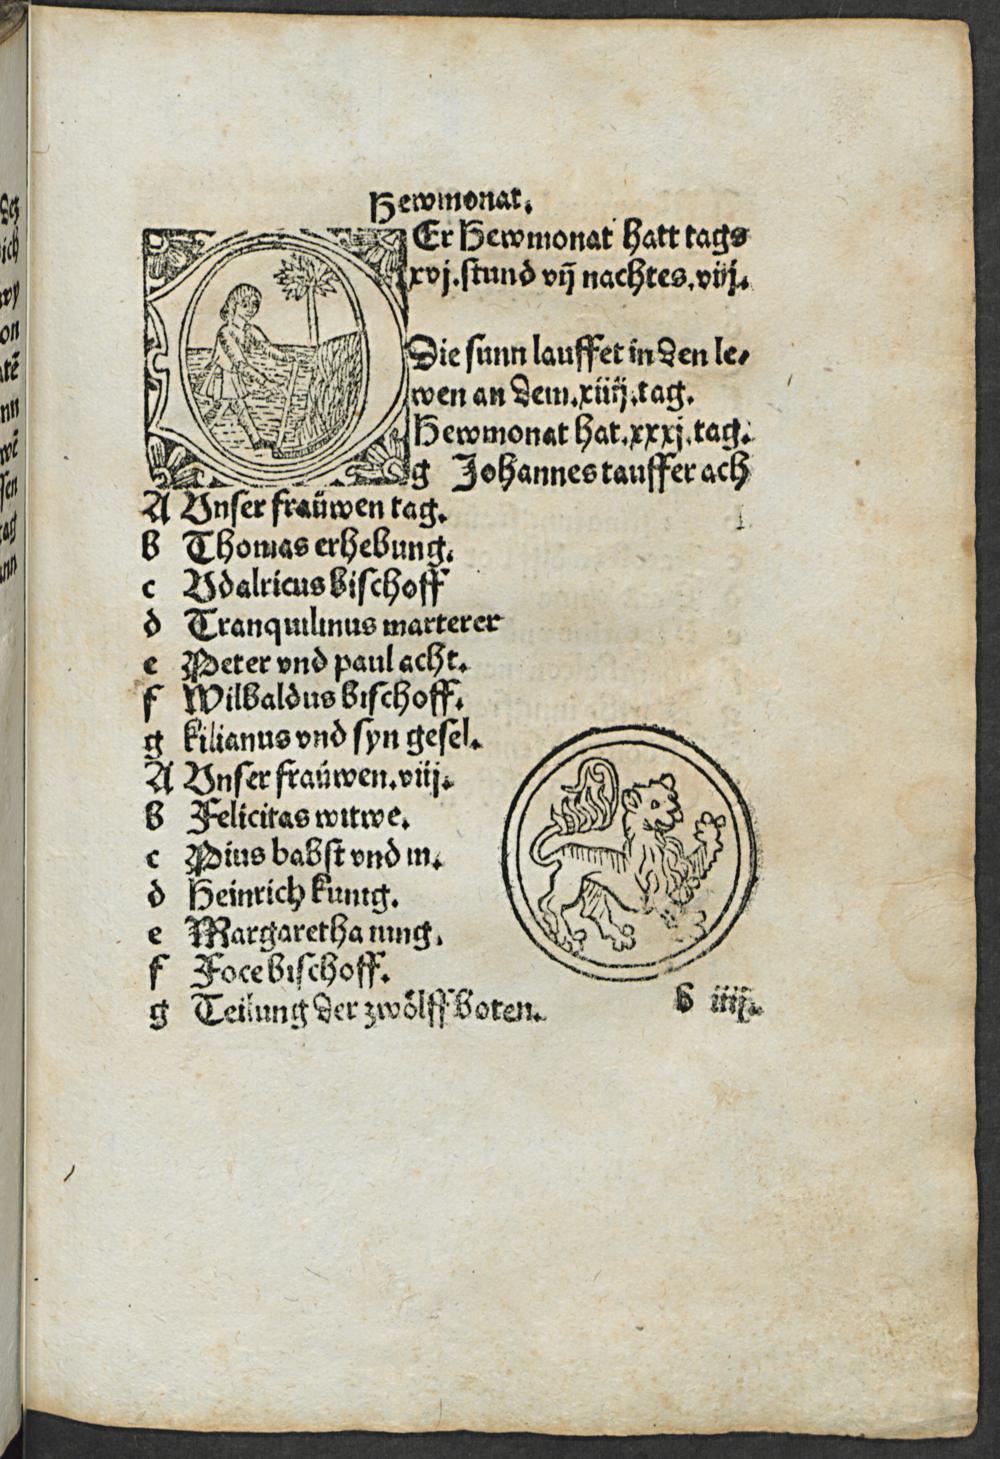 Hewmonat.
Er Hewmonat hatt tags
xvj. stund vij nachtes. viij.
Die sunn lauffet in den le⸗
wen an dem. xiiij. tag.
Hewmonat hat. xxxj. tag.
g Johannes tauffer ach
A Vnser fraüwen tag. t
b Thomas erhebung.
c Vdalricus bischoff
d Tranquilinus marterer
e Peter vnd paul acht.
f Wilbaldus bischoff.
g kilianus vnd syn gesel.
A Vnser fraüwen. viij.
b Felicitas witwe.
c Pius babst vnd m.
d Heinrich kunig.
e Margaretha iung.
f Foce bischoff.
g Teilung der zwölff boten.
b iiij.